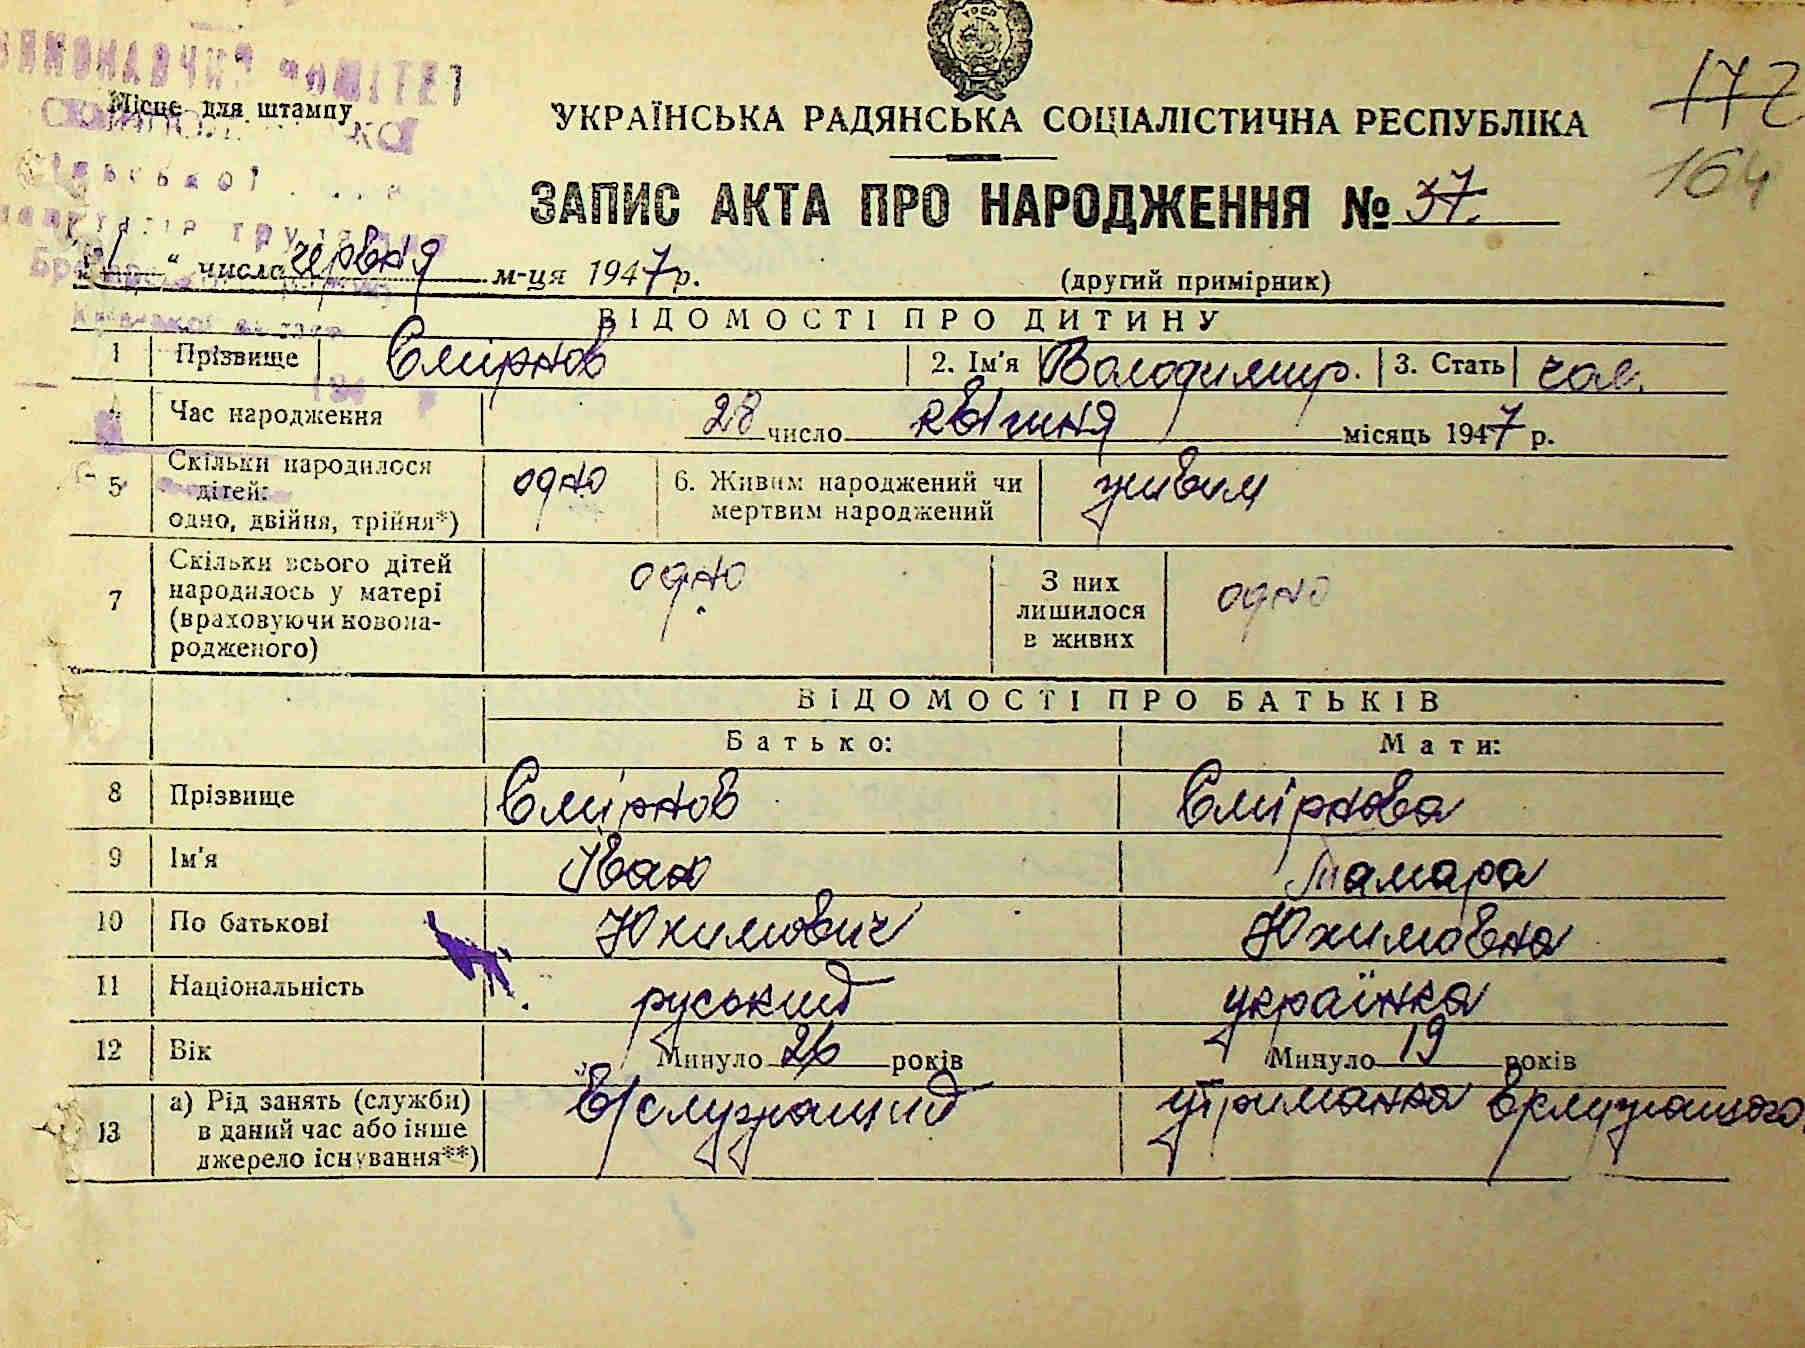 172
164
Місце для штампу
УКРАЇНСЬКА РАДЯНСЬКА СОЦІАЛІСТИЧНА РЕСПУБЛІКА
ЗАПИС АКТА ПРО НАРОДЖЕННЯ № 37.
" числа червня м-ця 1947 р.
(другий примірник)
ВІДОМОСТІ ПРО ДИТИНУ
1 Прізвище Смірнов 2. Ім'я Володимир. 3. Стать чол.
Час народження 28 число квітня місяць 1947 р.
5 Скільки народилося дітей: одно, двійня, трійня*) одно 6. Живим народжений чи мертвим народжений живим
7 Скільки всього дітей народилось у матері (враховуючи новонародженого) одно З них лишилося в живих одно
ВІДОМОСТІ ПРО БАТЬКІВ
Батько: Мати:
8 Прізвище Смірнов Смірнова
9 Ім'я Іван Тамара
10 По батькові Юхимович Юхимовна
11 Національність руський українка
12 Вік Минуло 26 років Минуло 19 років
13 а) Рід занять (служби) в даний час або інше джерело існування**) В/служащий утриманка В/служащого